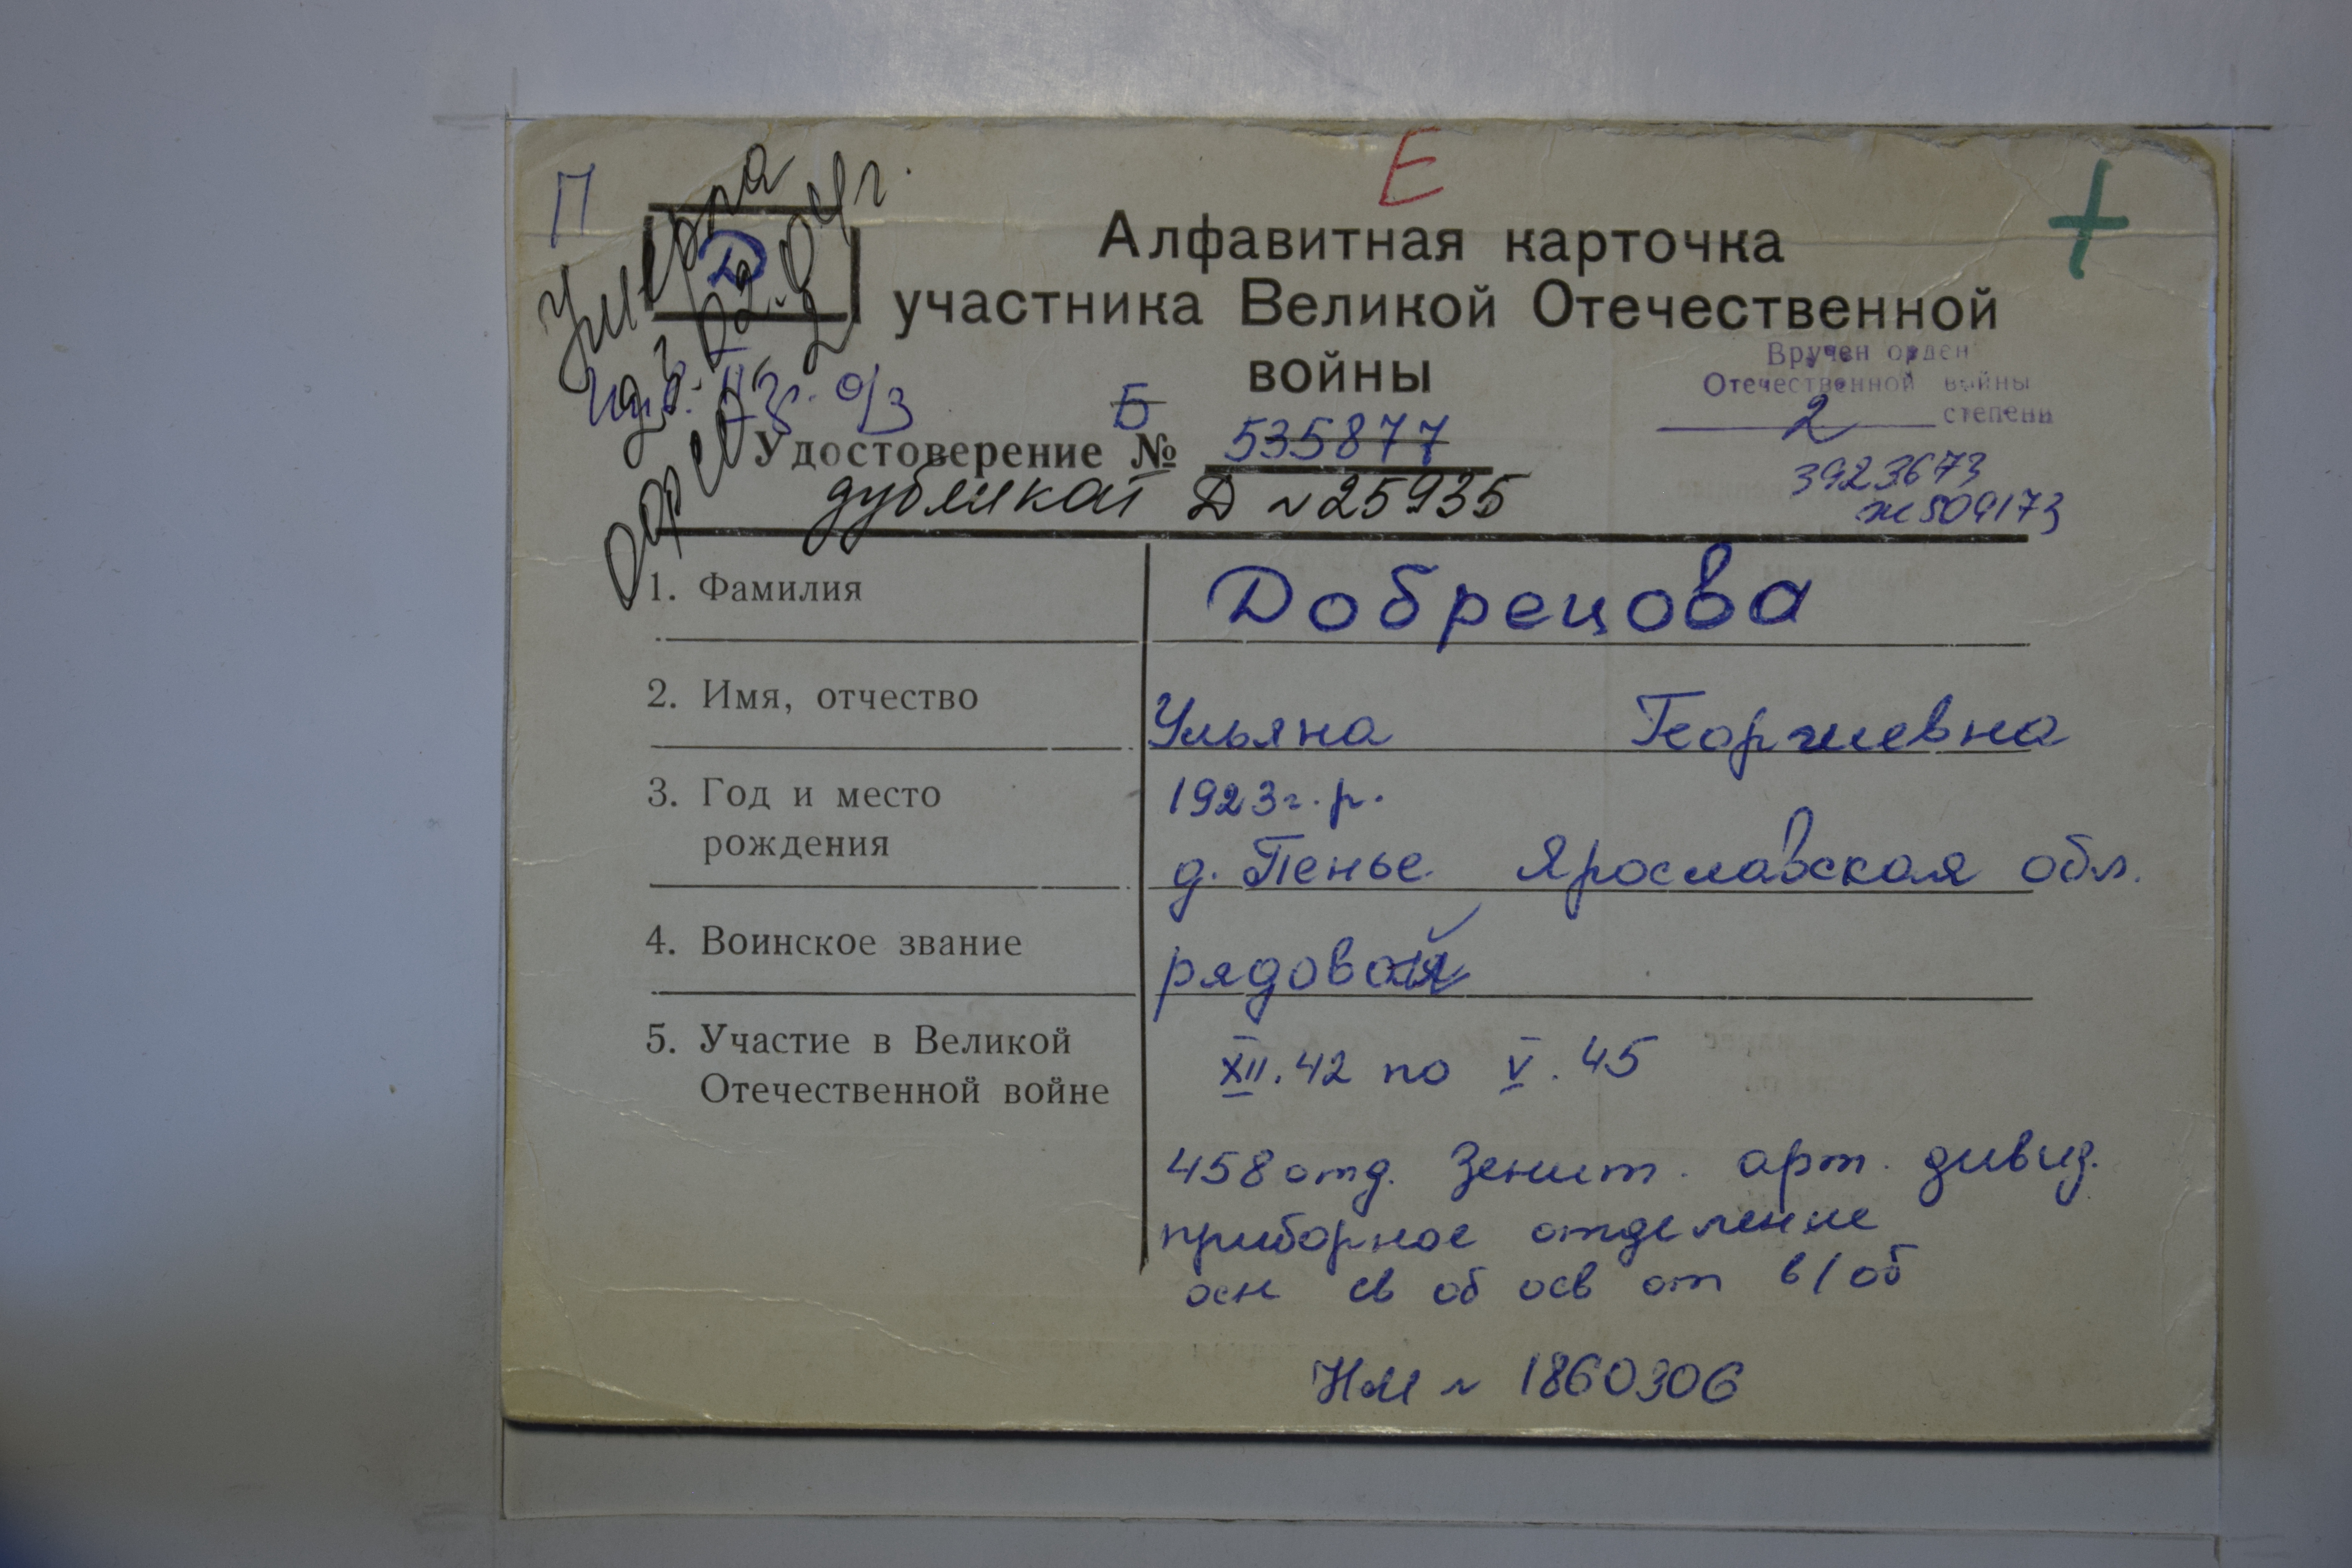 Е
П
+
Умерла
Д
Алфавитная карточка
участника Великой Отечественной
войны
Вручен орден
Отечественной войны
2 степени
3923673
ж 509173
Б 535877
Удостоверение №
дубликат Д № 25935
1. Фамилия Добрецова
2. Имя, отчество Ульяна Георгиевна
3. Год и место 1923 г.р.
рождения д. Пенье. Ярославская обл.
4. Воинское звание рядовой
5. Участие в Великой XII.42 по V.45
Отечественной войне
458 отд. Зенит. арт. дивиз.
приборное отделение
осн св об осв от в/об
НМ № 1860306